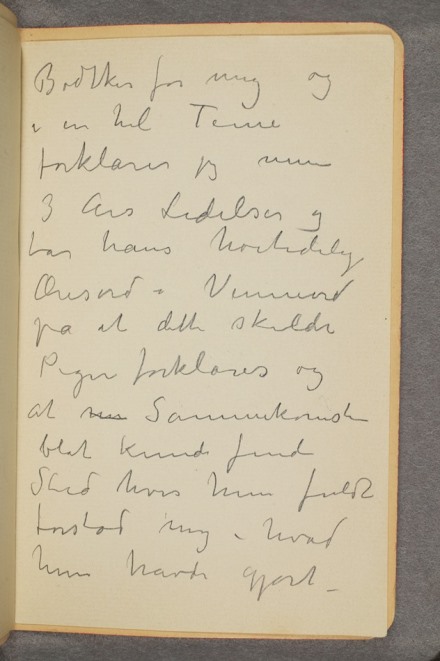 Bødtker for mig og
i en hel Time
forklarer jeg mine
3 Års Lidelser og
tar hans høitidelig
Æresord – Vennord
på at dette skulde
Piger forklares og
at Sammenkomsten
blot kunde finde
Sted hvis hun fuldt
forstod mig – hvad
hun havde gjort –